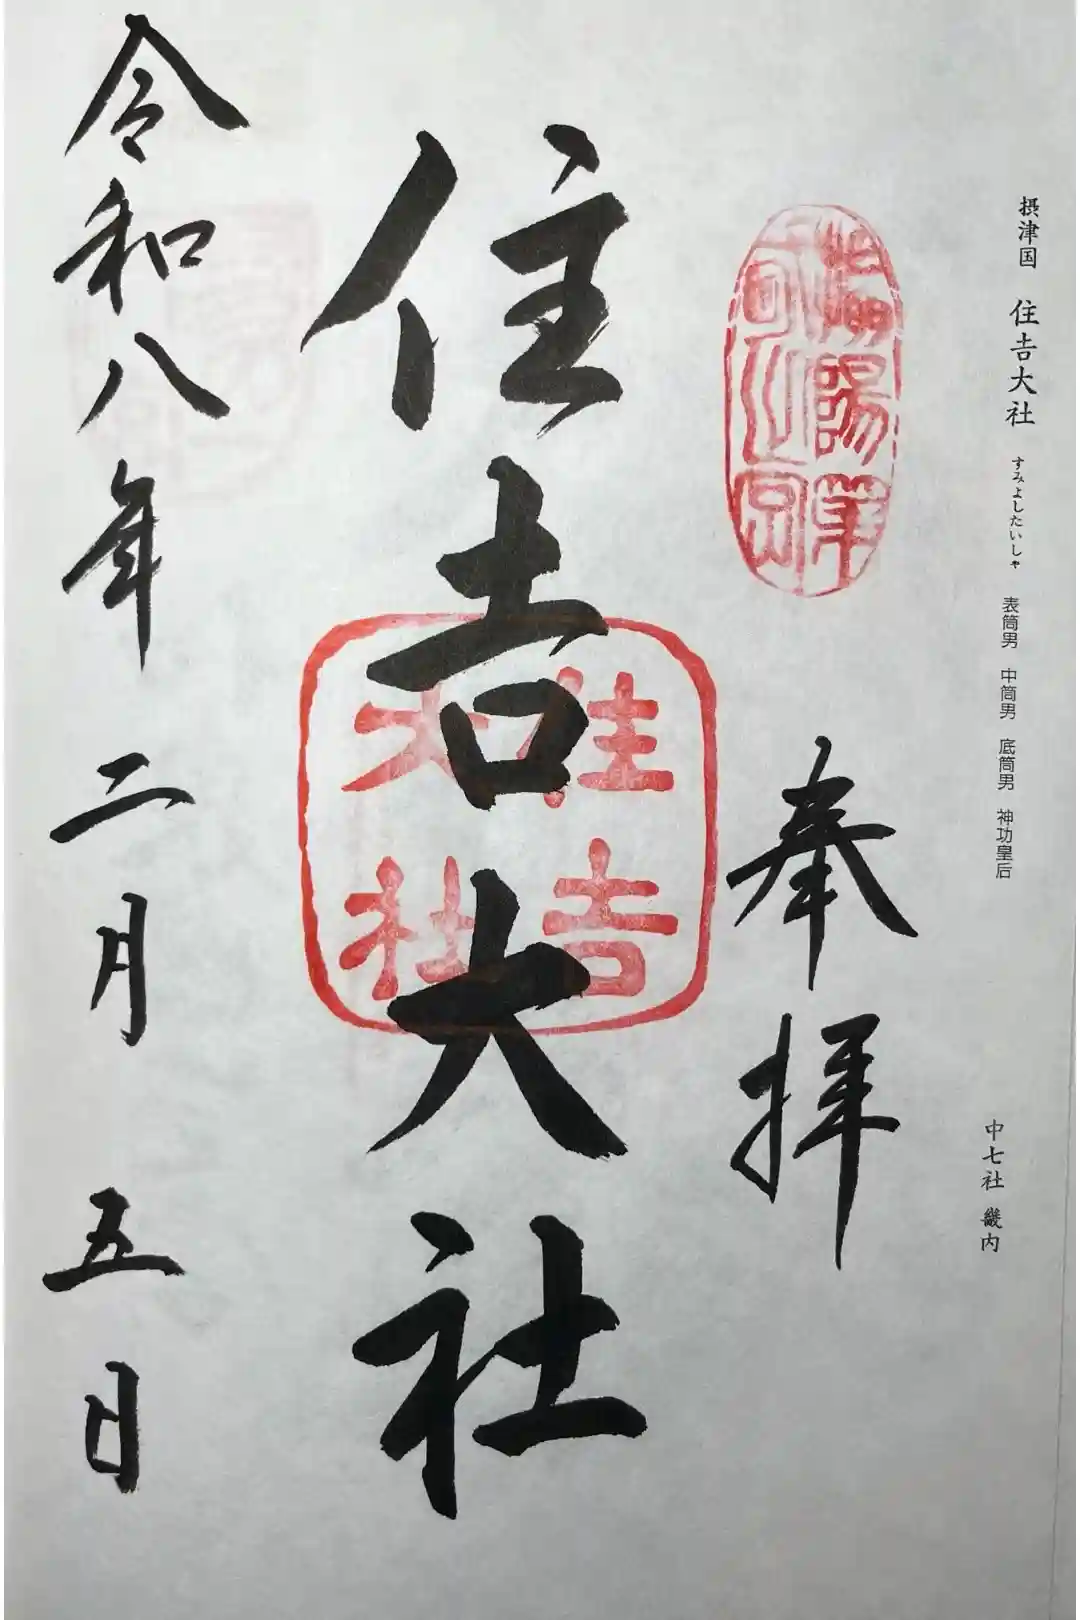 摂津国 住𠮷大社 すみよしたいしゃ 表筒男 中筒男 底筒男 神功皇后
中七社 畿内
奉拝
住𠮷大社
住𠮷
大社
令和八年二月五日